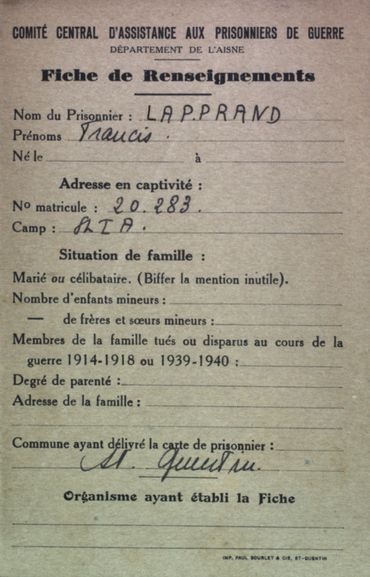 COMITÉ CENTRAL D'ASSISTANCE AUX PRISONNIERS DE GUERRE
DÉPARTEMENT DE L'AISNE
Fiche de Renseignements
Nom du Prisonnier : LAPPRAND
Prénoms Francis.
Né le à
Adresse en captivité :
No matricule : 20.283.
Camp : I A.
Situation de famille :
Marié ou célibataire. (Biffer la mention inutile).
Nombre d'enfants mineurs :
— de frères et sœurs mineurs :
Membres de la famille tués ou disparus au cours de la
guerre 1914-1918 ou 1939-1940 :
Degré de parenté :
Adresse de la famille :
Commune ayant délivré la carte de prisonnier :
St. Quentin.
Organisme ayant établi la Fiche
IMP. PAUL BOURLET & CIE, ST-QUENTIN